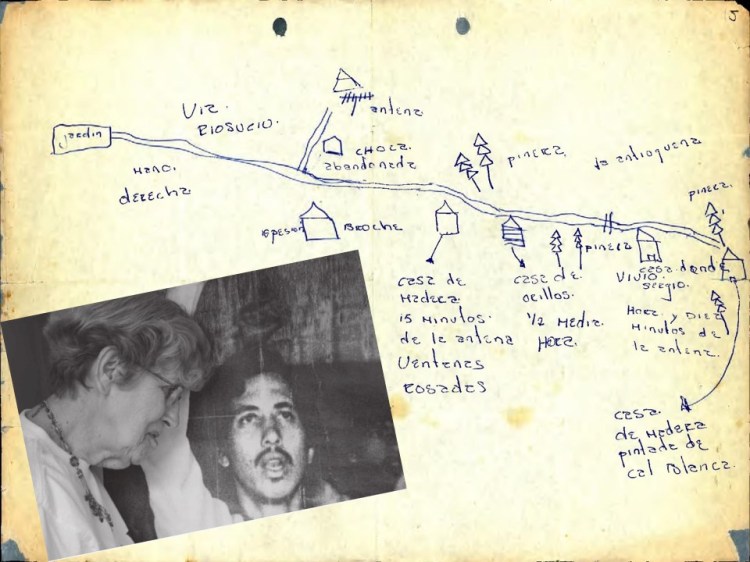 5
Jardín
Via.
Riosucio.
Mano.
derecha.
antena
choza
abandonada
BROCHE
pinera
la antioqueña
pinera
pinera
casa de
madera
15 minutos.
de la antena
ventanas
rosadas
casa de
orillos.
1/2 media
Hora.
casa donde
vivio
sergio.
Hora y Diez
minutos de
la antena.
casa.
de madera
pintada de
cal Blanca.